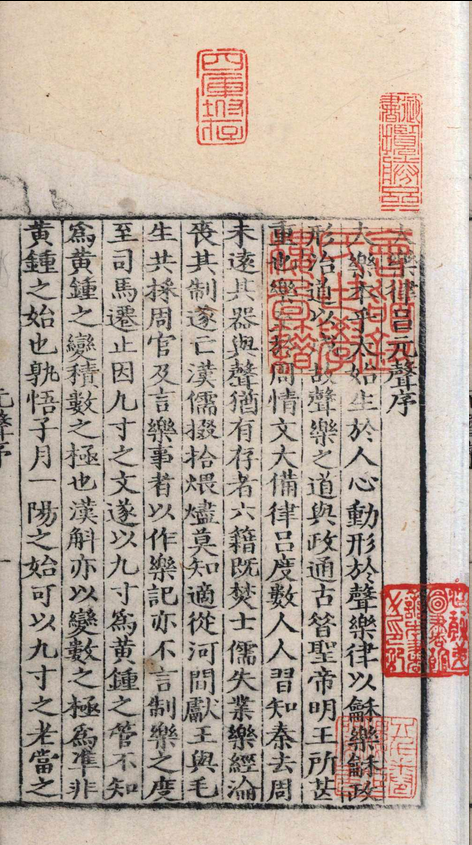 四庫坿存
大樂律呂元聲序
大樂本乎太始生於人心動形於聲樂律以龢樂龢政
形治通以故聲樂之道與政通古昔聖帝明王所甚
重也樂至周情文大備律呂度數人人習知秦去周
未遠其器與聲猶有存者六籍既焚士儒失業樂經淪
喪其制遂亡漢儒掇拾煨燼莫知適從河間獻王與毛
生共採周官及言樂事者以作樂記亦不言制樂之度
至司馬遷止因九寸之文遂以九寸爲黃鍾之管不知
爲黃鍾之變積數之極也漢斛亦以變數之極爲准非
黃鍾之始也孰悟子月一陽之始可以九寸之老當之
元聲序
一